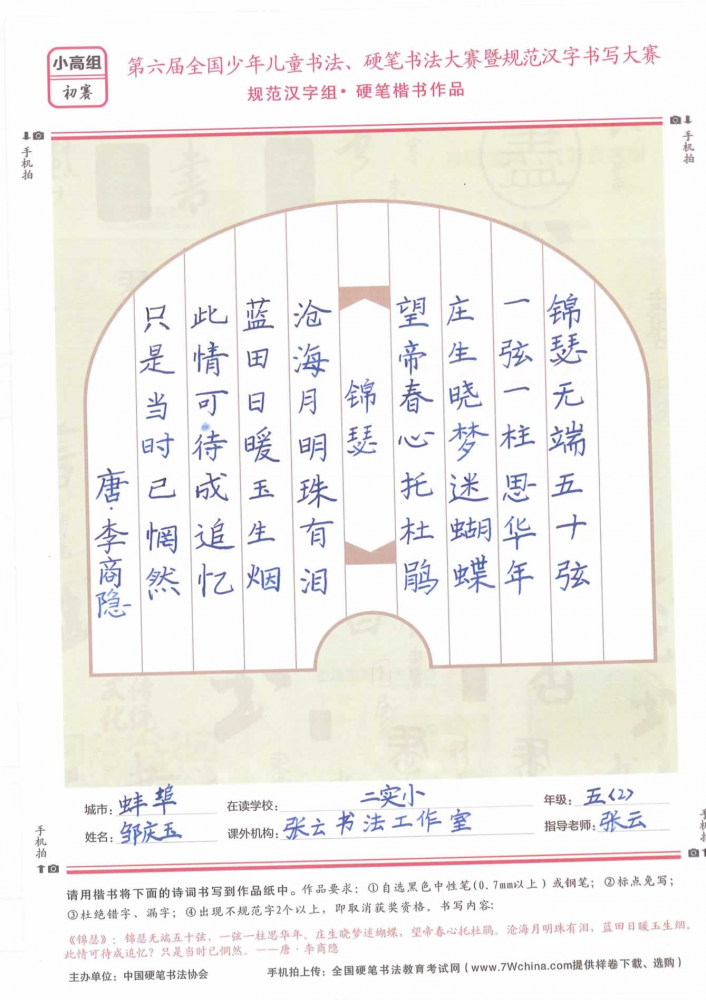 小高组
初赛
第六届全国少年儿童书法、硬笔书法大赛暨规范汉字书写大赛
规范汉字组·硬笔楷书作品
手机拍
手机拍
锦瑟无端五十弦
一弦一柱思华年
庄生晓梦迷蝴蝶
望帝春心托杜鹃
锦瑟
沧海月明珠有泪
蓝田日暖玉生烟
此情可待成追忆
只是当时已惘然
唐·李商隐
城市：蚌埠 在读学校：二实小 年级：五(2)
姓名：邹庆玉 课外机构：张云书法工作室 指导老师：张云
手机拍
手机拍
请用楷书将下面的诗词书写到作品纸中。作品要求：①自选黑色中性笔(0.7mm以上）或钢笔；②标点免写；
③杜绝错字、漏字；④出现不规范字2个以上，即取消获奖资格。书写内容：
《锦瑟》：锦瑟无端五十弦，一弦一柱思华年。庄生晓梦迷蝴蝶，望帝春心托杜鹃。沧海月明珠有泪，蓝田日暖玉生烟。
此情可待成追忆？只是当时已惘然。——唐·李商隐
主办单位：中国硬笔书法协会 手机拍上传：全国硬笔书法教育考试网（www.7Wchina.com提供样卷下载、选购）